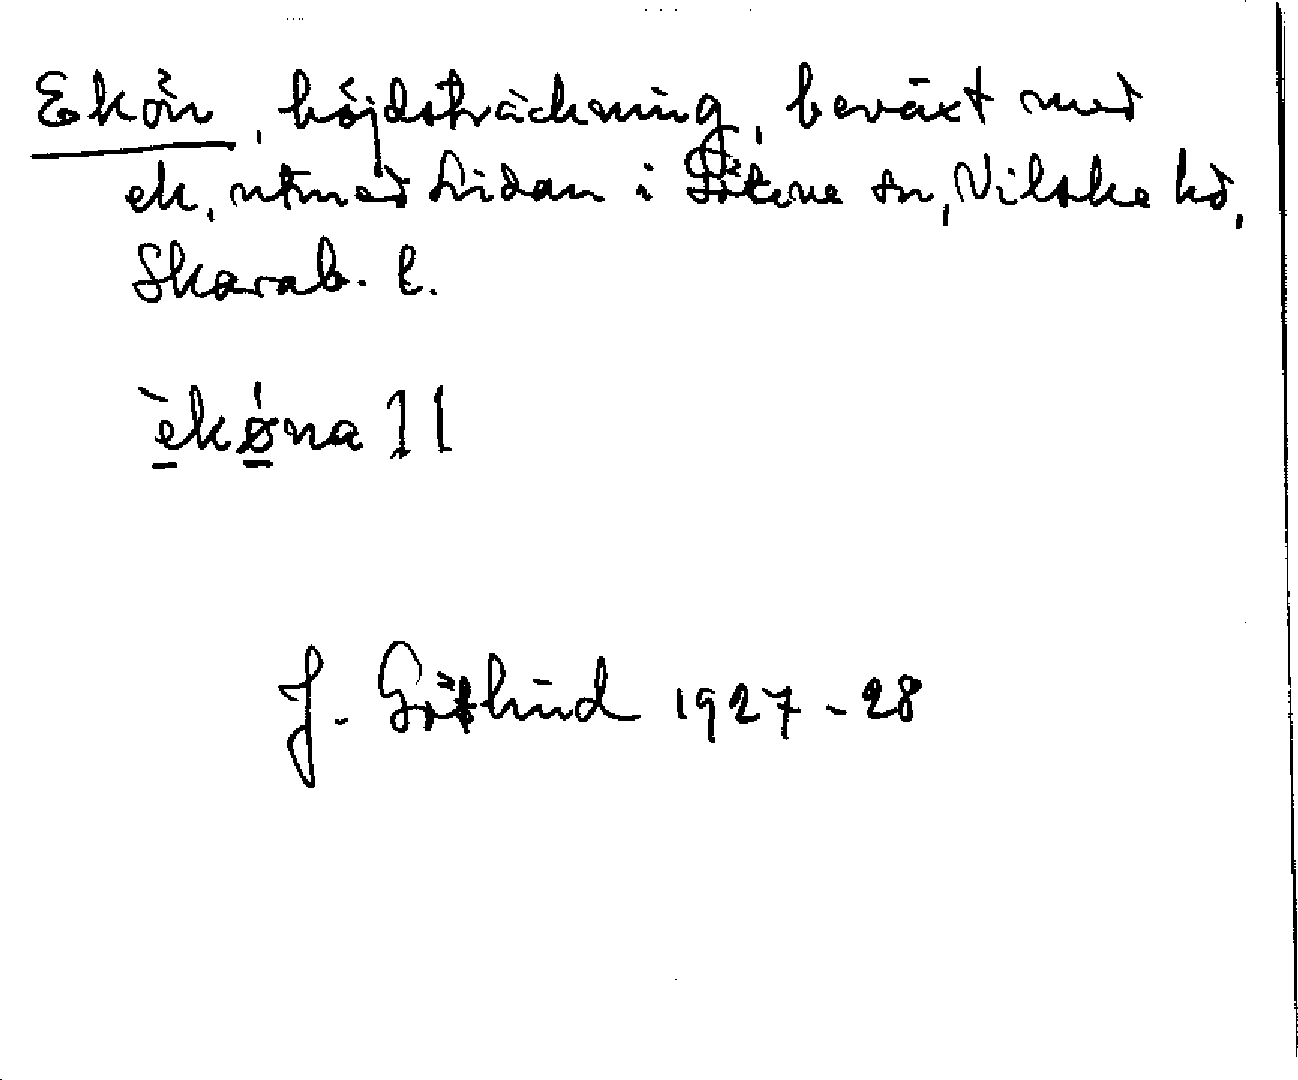 Ekön, höjdsträckning, beväxt med
ek, utmed Lidan i Göteve sn, Vilske hd,
Skarab. l.
èkø̀na 11
J. Götlind 1927-28